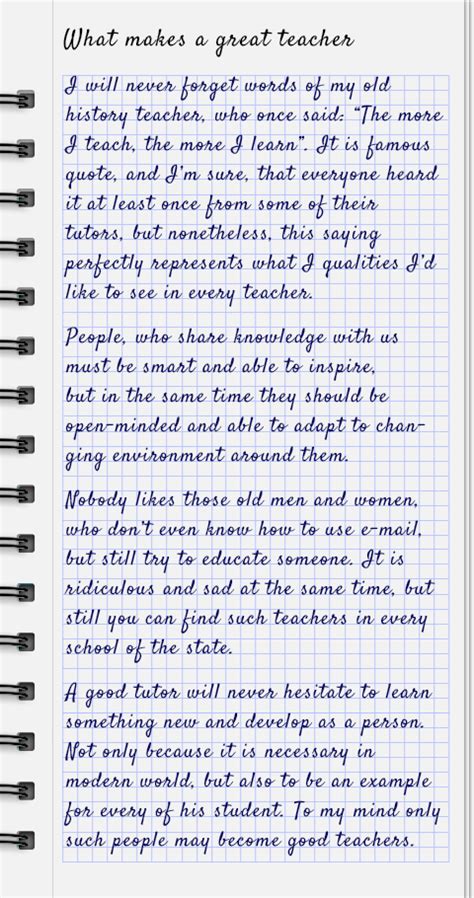 What makes a great teacher
I will never forget words of my old
history teacher, who once said: “The more
I teach, the more I learn”. It is famous
quote, and I’m sure, that everyone heard
it at least once from some of their
tutors, but nonetheless, this saying
perfectly represents what I qualities I’d
like to see in every teacher.
People, who share knowledge with us
must be smart and able to inspire,
but in the same time they should be
open-minded and able to adapt to chan-
ging environment around them.
Nobody likes those old men and women,
who don’t even know how to use e-mail,
but still try to educate someone. It is
ridiculous and sad at the same time, but
still you can find such teachers in every
school of the state.
A good tutor will never hesitate to learn
something new and develop as a person.
Not only because it is necessary in
modern world, but also to be an example
for every of his student. To my mind only
such people may become good teachers.